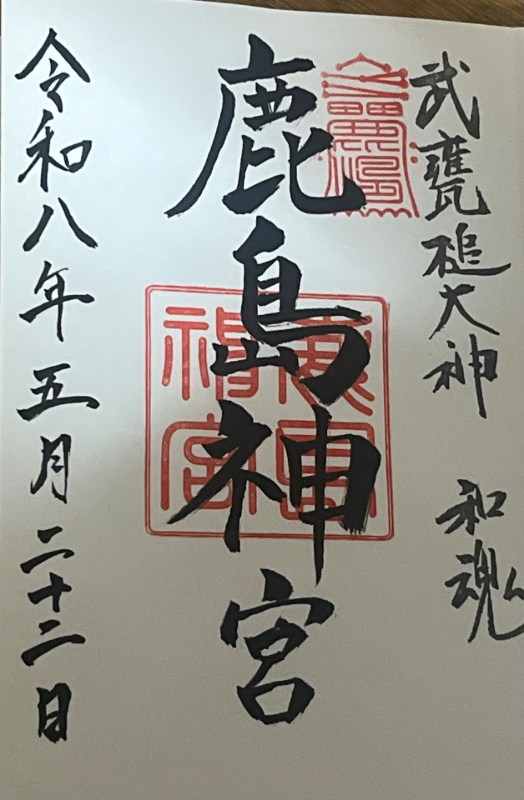 武甕槌大神 和魂
鹿島神宮
令和八年五月二十二日
鹿島神宮